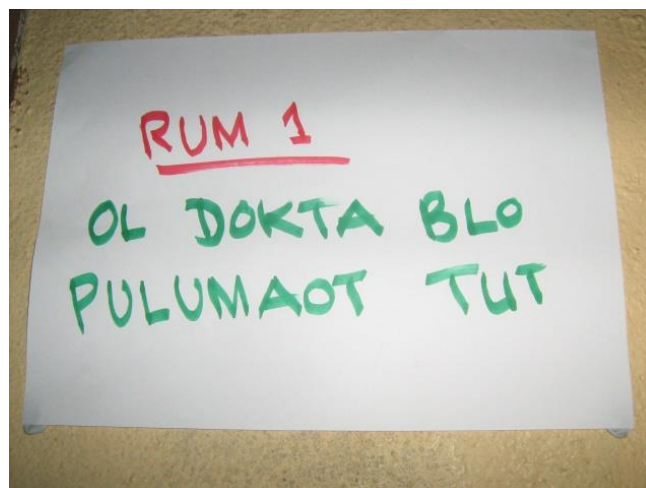 RUM 1
OL DOKTA BLO
PULUMAOT TUT